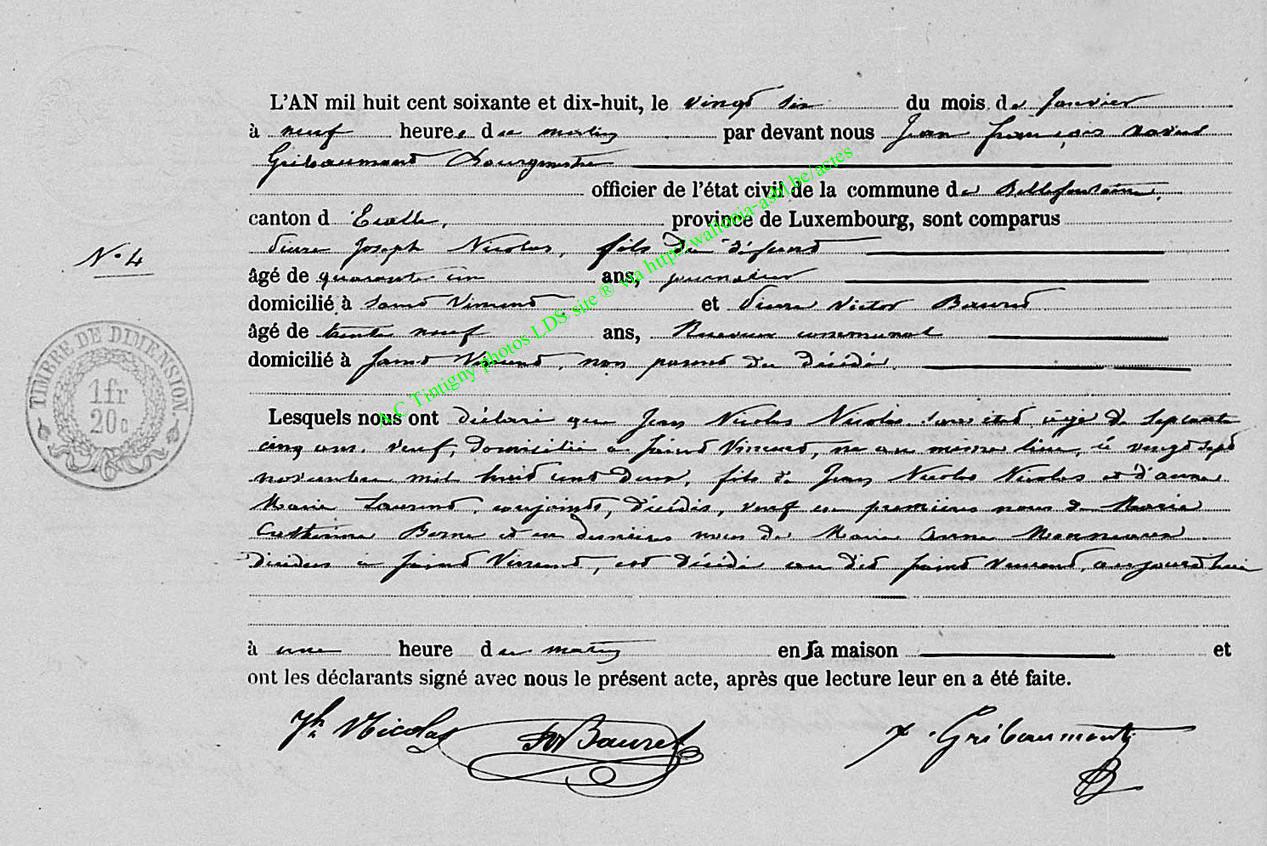 L'AN mil huit cent soixante et dix-huit, le vingt six du mois de Janvier
à neuf heures du matin par devant nous Jean françois
Gribaumont Bourgmestre
officier de l'état civil de la commune de Bellefontaine,
canton d'Etalle, province de Luxembourg, sont comparus
Pierre Joseph Nicolas, fils du défunt
N° 4
âgé de quarante cinq ans, journalier
domicilié à Saint Vincent et Pierre Victor Bauret
âgé de trente neuf ans, Receveur communal
domicilié à Saint Vincent, non parent du décédé.
TIMBRE DE DIMENSION
1 fr
20 c
Lesquels nous ont déclaré que Jean Nicolas Nicolas âgé de septante
cinq ans, veuf, domicilié à Saint Vincent, né au même lieu, le vingt sept
novembre mil huit cent deux, fils de Jean Nicolas Nicolas et d'anne
Marie Laurent, conjoints, décédés, veuf en premières noces de Marie
Catherine et en dernières noces de Marie Anne
décédées à Saint Vincent, est décédé au dit Saint Vincent, aujourd'hui
à une heure du matin en sa maison et
ont les déclarants signé avec nous le présent acte, après que lecture leur en a été faite.
Jh Nicolas Bauret Gribaumont
A.C Tintigny photos LDS site ® via http://wallonia-asbl.be/actes